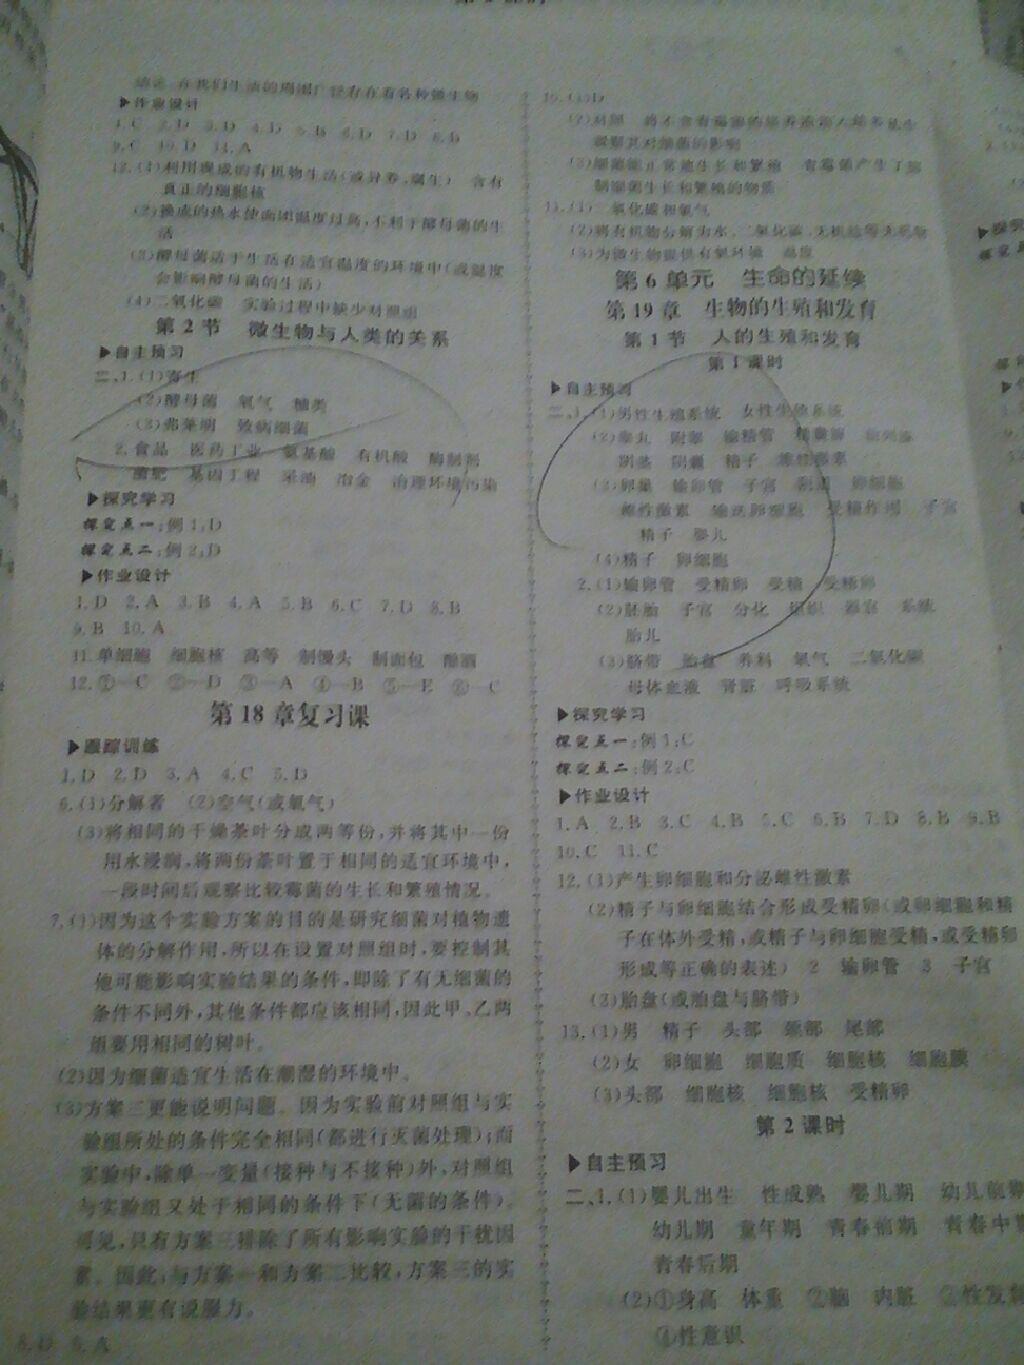 结论 在我们生活的周围广泛存在着各种微生物
▶作业设计
1.C 2.D 3.D 4.D 5.B 6.D 7.D 8.D
9.C 10.D 11.A
12.(1)利用现成的有机物生活(或异养、腐生) 含有
真正的细胞核
(2)换成的热水使面团温度过高,不利于酵母菌的生
活
(3)酵母菌适于生活在适宜温度的环境中(或温度
会影响酵母菌的生活)
(4)二氧化碳 实验过程中缺少对照组
第2节 微生物与人类的关系
▶自主预习
二、1.(1)寄生
(2)酵母菌 氧气 糖类
(3)弗莱明 致病细菌
2.食品 医药工业 氨基酸 有机酸 酶制剂
菌肥 基因工程 采油 冶金 治理环境污染
▶探究学习
探究点一:例1:D
探究点二:例2:D
▶作业设计
1.D 2.A 3.B 4.A 5.B 6.C 7.D 8.B
9.B 10.A
11.单细胞 细胞核 高等 制馒头 制面包 酿酒
12.①—C ②—D ③—A ④—B ⑤—E ⑥—C
第18章复习课
▶跟踪训练
1.D 2.D 3.A 4.C 5.D
6.(1)分解者 (2)空气(或氧气)
(3)将相同的干燥茶叶分成两等份,并将其中一份
用水浸润,将两份茶叶置于相同的适宜环境中,
一段时间后观察比较霉菌的生长和繁殖情况。
7.(1)因为这个实验方案的目的是研究细菌对植物遗
体的分解作用,所以在设置对照组时,要控制其
他可能影响实验结果的条件,即除了有无细菌的
条件不同外,其他条件都应该相同,因此甲、乙两
组要用相同的树叶。
(2)因为细菌适宜生活在潮湿的环境中。
(3)方案三更能说明问题。因为实验前对照组与实
验组所处的条件完全相同(都进行灭菌处理);而
实验中,除单一变量(接种与不接种)外,对照组
与实验组又处于相同的条件下(无菌的条件)。
可见,只有方案三排除了所有影响实验的干扰因
素。因此,与方案一和方案二比较,方案三的实
验结果更有说服力。
8.D 9.A
10.(1)D
(2)对照
观察其对细菌的影响
(3)细菌能正常地生长和繁殖 青霉菌产生了抑
制细菌生长和繁殖的物质
11.(1)二氧化碳和氧气
(2)将有机物分解为水、二氧化碳、无机盐等无机物
(3)为微生物提供有氧环境 温度
第6单元 生命的延续
第19章 生物的生殖和发育
第1节 人的生殖和发育
第1课时
▶自主预习
二、1.(1)男性生殖系统 女性生殖系统
(2)睾丸 附睾 输精管 精囊腺 前列腺
阴茎 阴囊 精子 雄性激素
(3)卵巢 输卵管 子宫 阴道 卵细胞
雌性激素 输送卵细胞 受精作用 子宫
精子 婴儿
(4)精子 卵细胞
2.(1)输卵管 受精卵 受精 受精卵
(2)胚胎 子宫 分化 组织 器官 系统
胎儿
(3)脐带 胎盘 养料 氧气 二氧化碳
母体血液 肾脏 呼吸系统
▶探究学习
探究点一:例1:C
探究点二:例2:C
▶作业设计
1.A 2.B 3.C 4.B 5.C 6.B 7.D 8.B 9.B
10.C 11.C
12.(1)产生卵细胞和分泌雌性激素
(2)精子与卵细胞结合形成受精卵(或卵细胞和精
子在体外受精,或精子与卵细胞受精,或受精卵
形成等正确的表述) 2 输卵管 3 子宫
(3)胎盘(或胎盘与脐带)
13.(1)男 精子 头部 颈部 尾部
(2)女 卵细胞 细胞质 细胞核 细胞膜
(3)头部 细胞核 细胞核 受精卵
第2课时
▶自主预习
二、1.(1)婴儿出生 性成熟 婴儿期 幼儿前期
幼儿期 童年期 青春前期 青春中期
青春后期
(2)①身高 体重 ②脑 内脏 ③性发育
④性意识